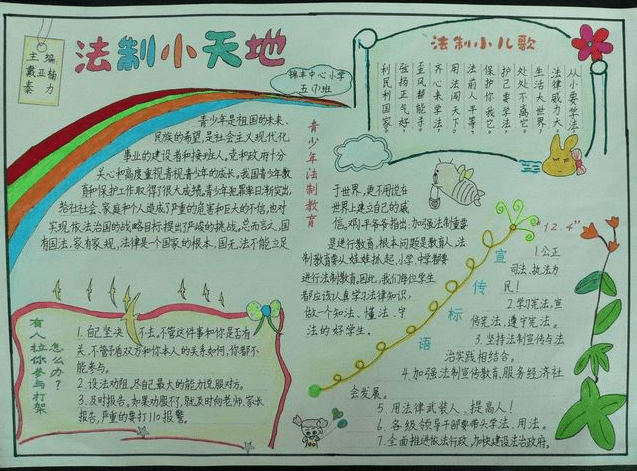 法制小天地
主编
戴亚杨
秦 力
锦丰中心小学
五(1)班
法制小儿歌
从小要学法
法律威力大。
生活大世界，
处处不离它。
护己要学法，
保护你我它。
法前人平等，
用法闯天下。
齐心来学法，
歪风帮能手。
弘扬正气好，
利民利国家。
青少年法制教育
青少年是祖国的未来，
民族的希望，是社会主义现代化
事业的建设者和接班人，党和政府十分
关心和高度重视青少年的成长，我国青少年教
育和保护工作取得了很大成绩，青少年犯罪率日渐突出，
给社社会、家庭和个人造成了严重的危害和巨大的不信，也对
实现依法治国的战略目标提出了严峻的挑战，总而言之，国
有国法，家有家规，法律是一个国家的根本，国无法不能立足
于世界，更不用说在
世界上建立自己的威
信。邓小平爷爷指出，加强法制重要
是进行教育，根本问题是教育人，法
制教育要从娃娃抓起，小学、中学都要
进行法制教育。因此，我们每位学生
都应该认真学习法律知识，
做一个知法、懂法、守
法的好学生。
有人拉你参与打架
怎么办？
1.自己坚决不去，不管这件事和你是否有
关，不管矛盾双方和你本人的关系如何，你都不
能参与。
2.设法劝阻，尽自己最大的能力说服对方。
3.及时报告。如果劝服不了，就及时向老师、家长
报告，严重的要打110报警。
“12.4”
宣传标语
1.公正
司法、执法为
民！
2.学习宪法，宣
传宪法，遵守宪法。
3.坚持法制宣传与法
治实践相结合。
4.加强法制宣传教育，服务经济社
会发展。
5.用法律武装人、提高人！
6.各级领导干部要带头学法、用法。
7.全面推进依法行政，加快建设法治政府。